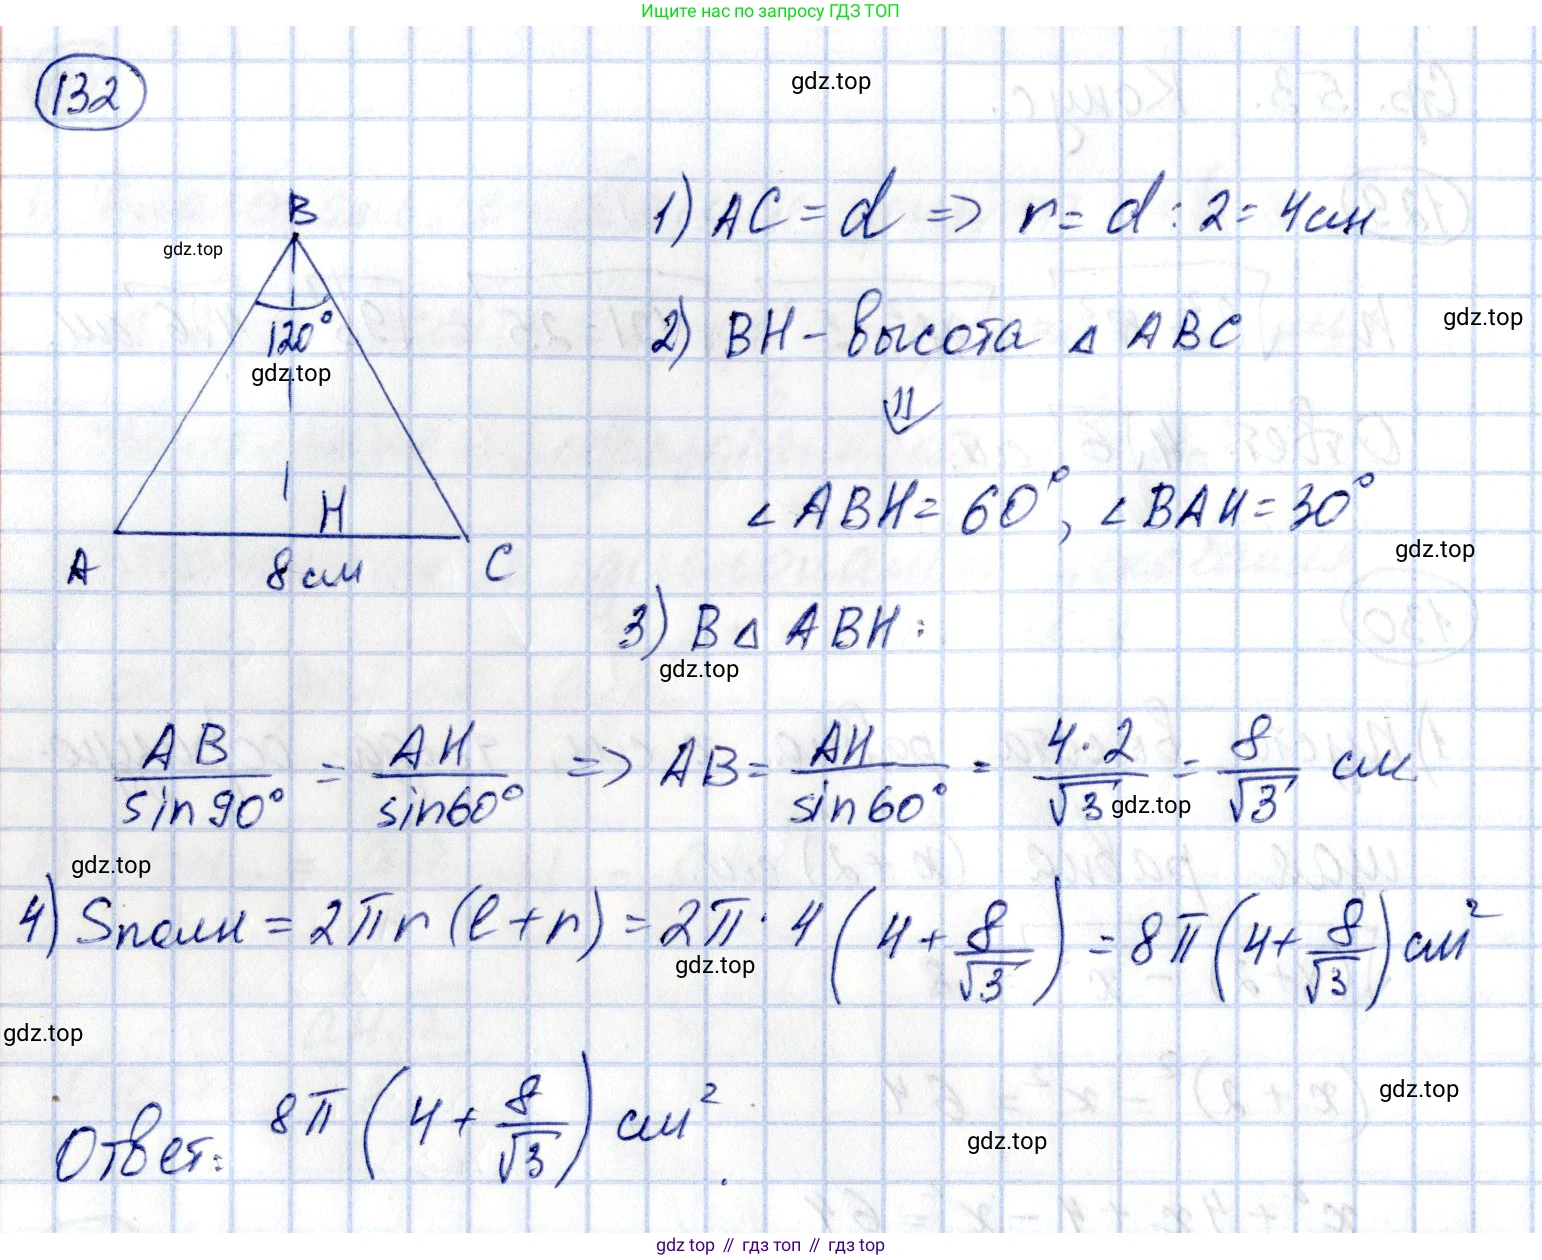 Ищите нас по запросу ГДЗ ТОП
132
gdz.top
B
1) AC = d => r = d : 2 = 4 см
gdz.top
120°
2) BH - высота △ ABC
gdz.top
gdz.top
⇓
H
∠ ABH = 60°, ∠ BAH = 30°
gdz.top
A
8 см
C
3) В △ ABH:
gdz.top
AB/sin90° = AH/sin60° => AB = AH/sin60° = 4·2/√3 = 8/√3 см
gdz.top
gdz.top
4) Sполн = 2πr(l+r) = 2π·4(4+8/√3) = 8π(4+8/√3) см²
gdz.top
gdz.top
gdz.top
Ответ: 8π(4+8/√3) см².
gdz.top
gdz top // гдз топ // gdz top